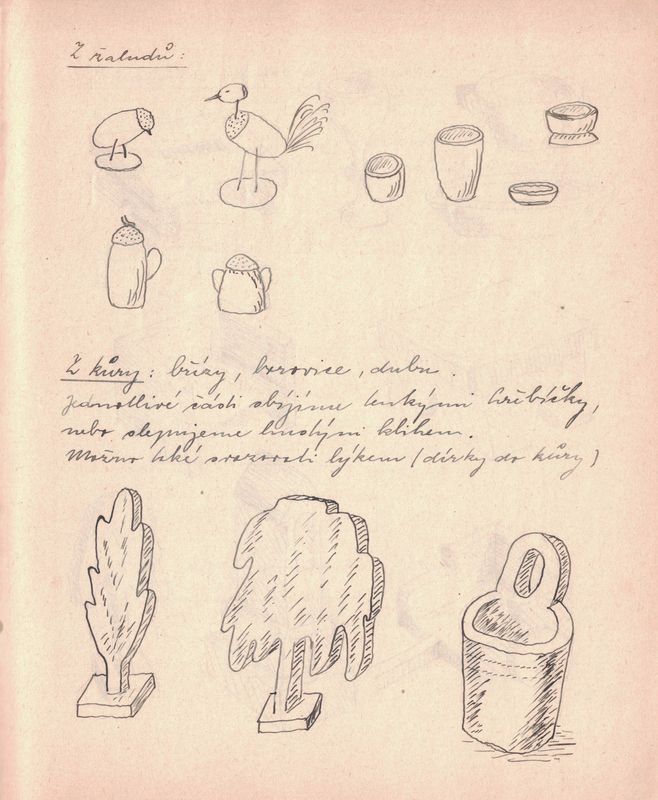 Z žaludů:
Z kůry: břízy, borovice, dubu.
Jednotlivé části sbíjíme tenkými hřebíčky,
nebo slepujeme hustým klihem.
Možno také svazovati lýkem (dírky do kůry)